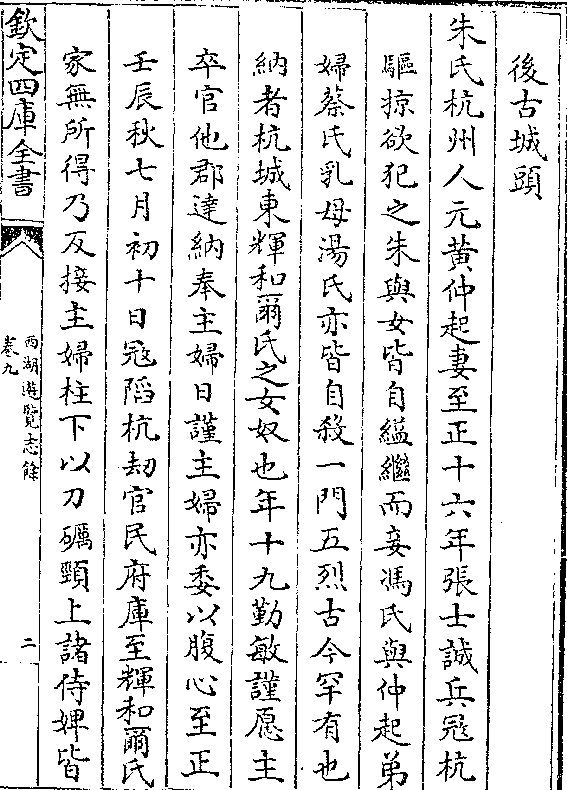 後古城頭
朱氏杭州人元黄仲起妻至正十六年張士誠兵冦杭
驅掠欲犯之朱與女皆自縊繼而妾馮氏與仲起弟
婦蔡氏乳母湯氏亦皆自殺一門五烈古今罕有也
納者杭城東輝和爾氏之女奴也年十九勤敏謹愿主
卒官他郡達納奉主婦日謹主婦亦委以腹心至正
壬辰秋七月初十日冦陷杭刼官民府庫至輝和爾氏
家無所得乃反接主婦柱下以刀礪頸上諸侍婢皆
欽定四庫全書
西湖遊覽志餘
卷九
二